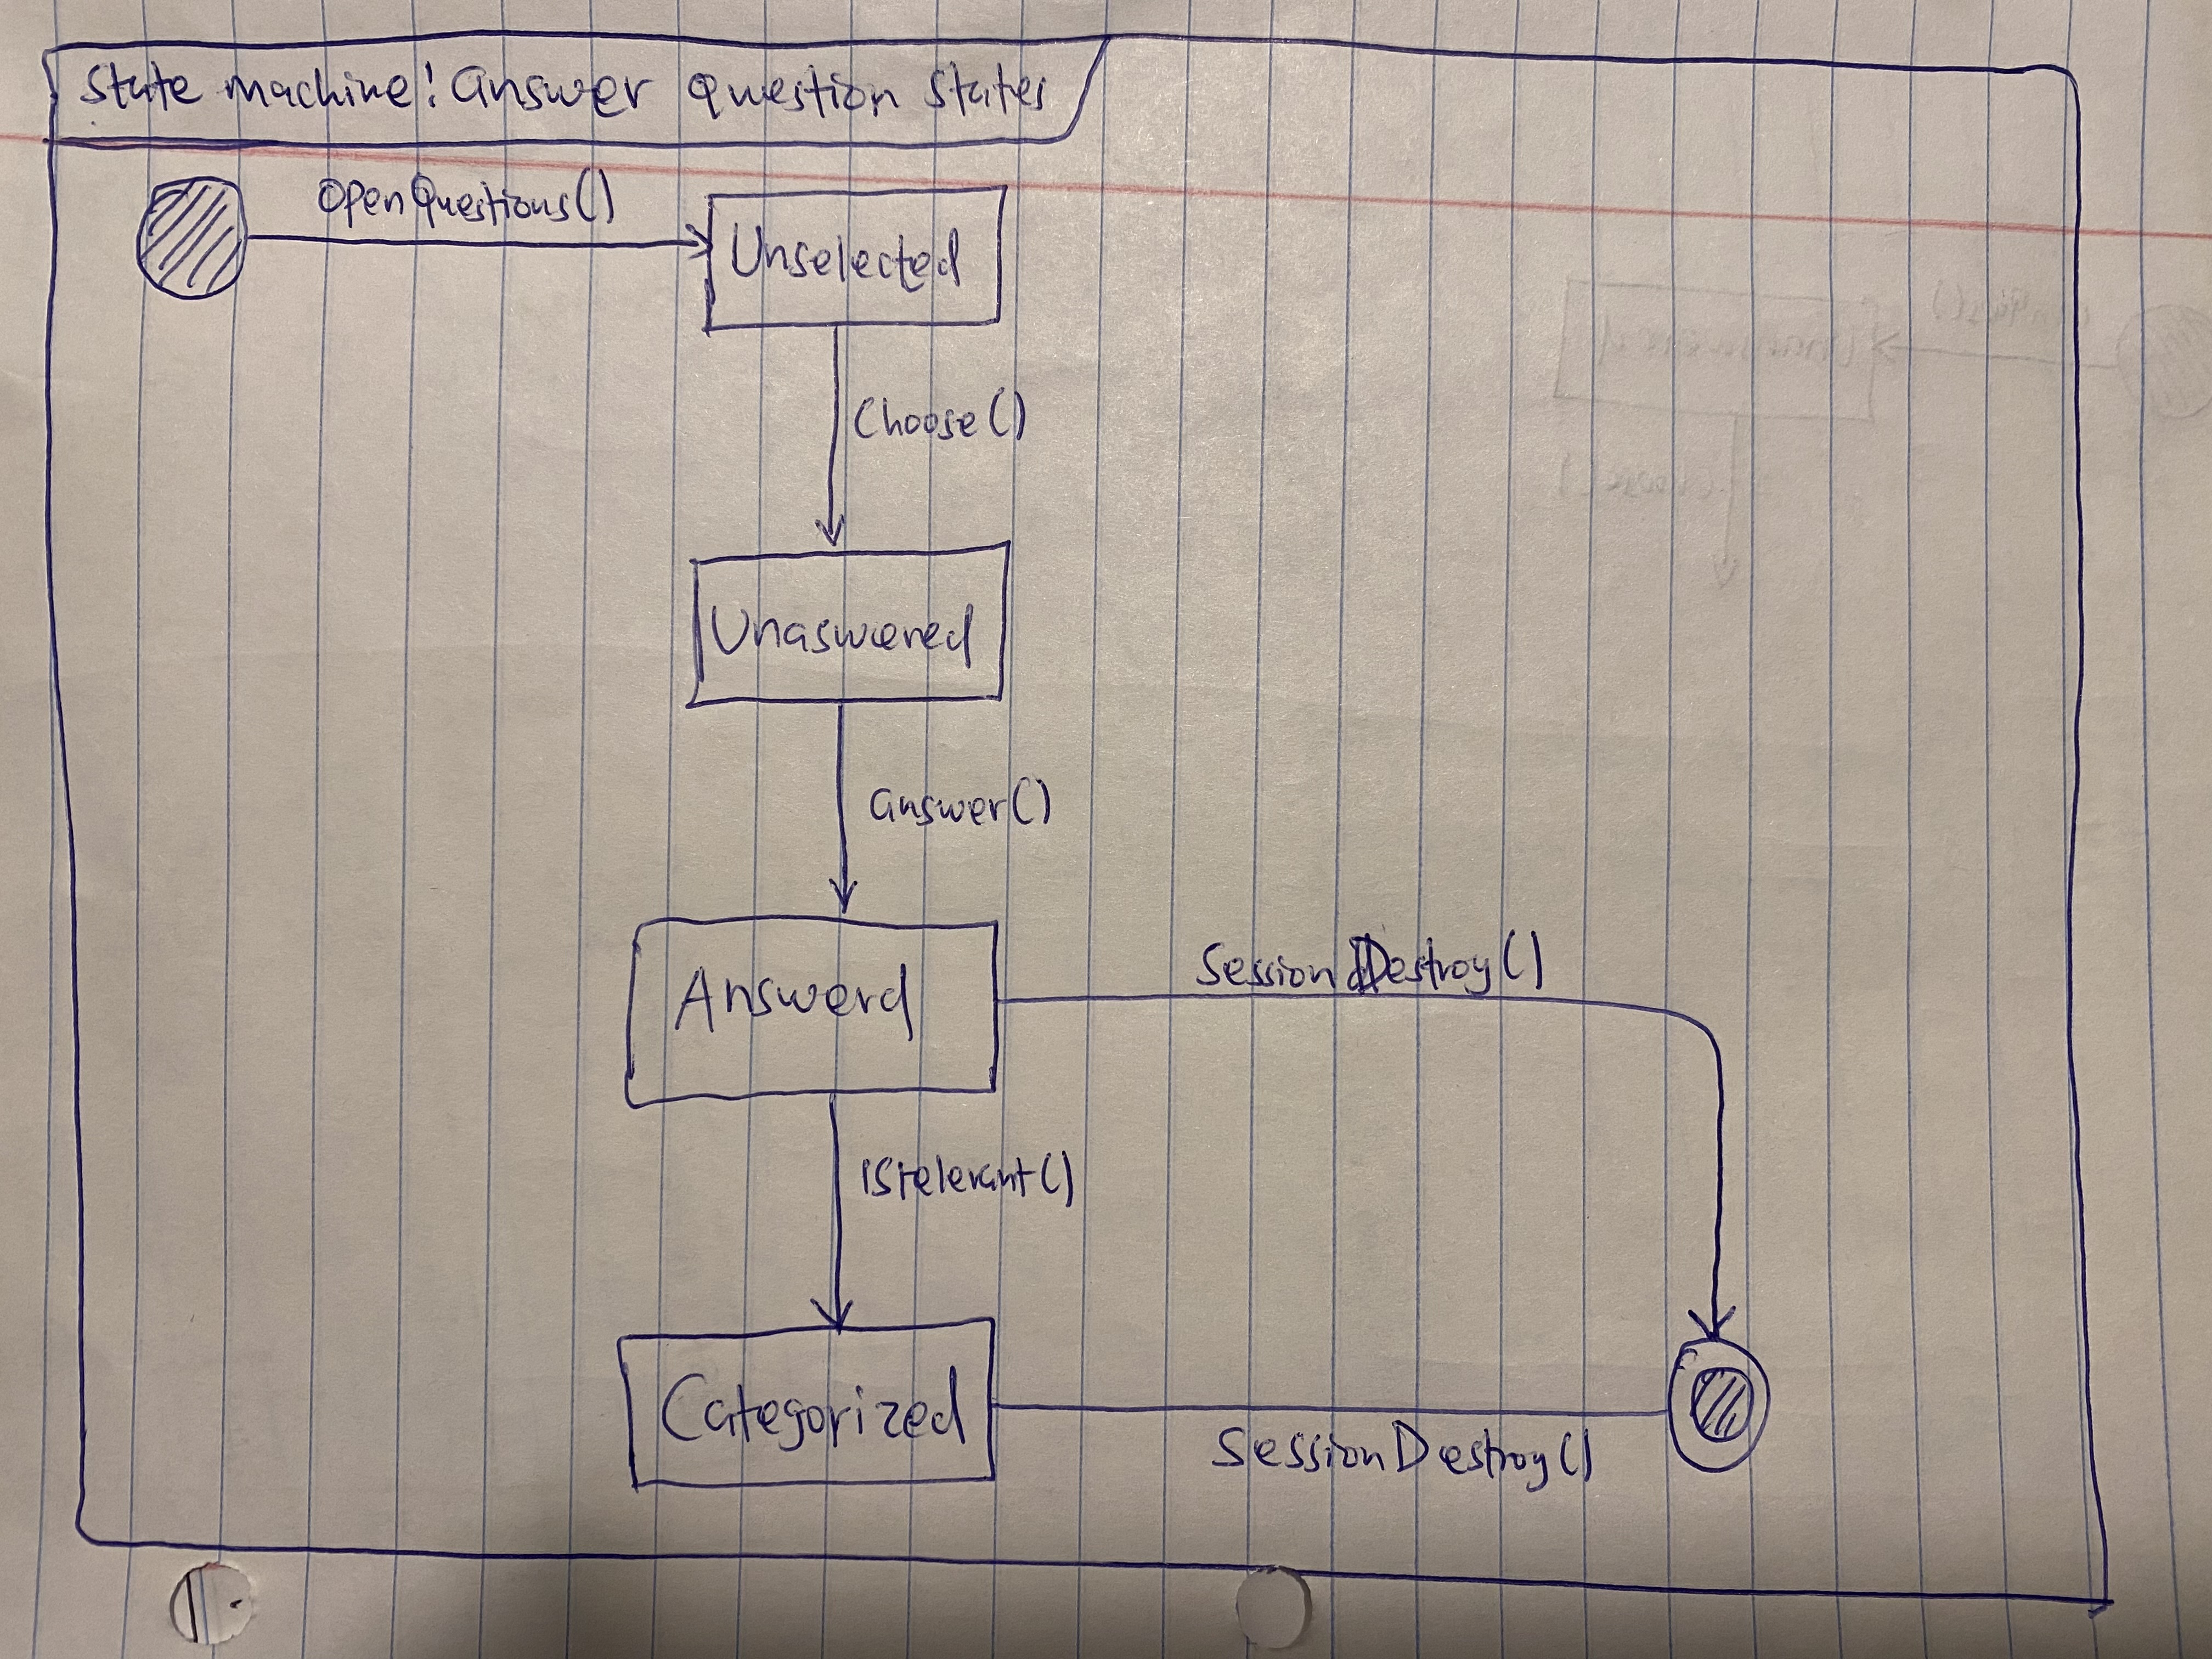 State machine! Answer Question States
OpenQuestions()
Unselected
Choose()
Unaswered
answer()
Answerd
Session Destroy()
isrelevant()
Categorized
SessionDestroy()